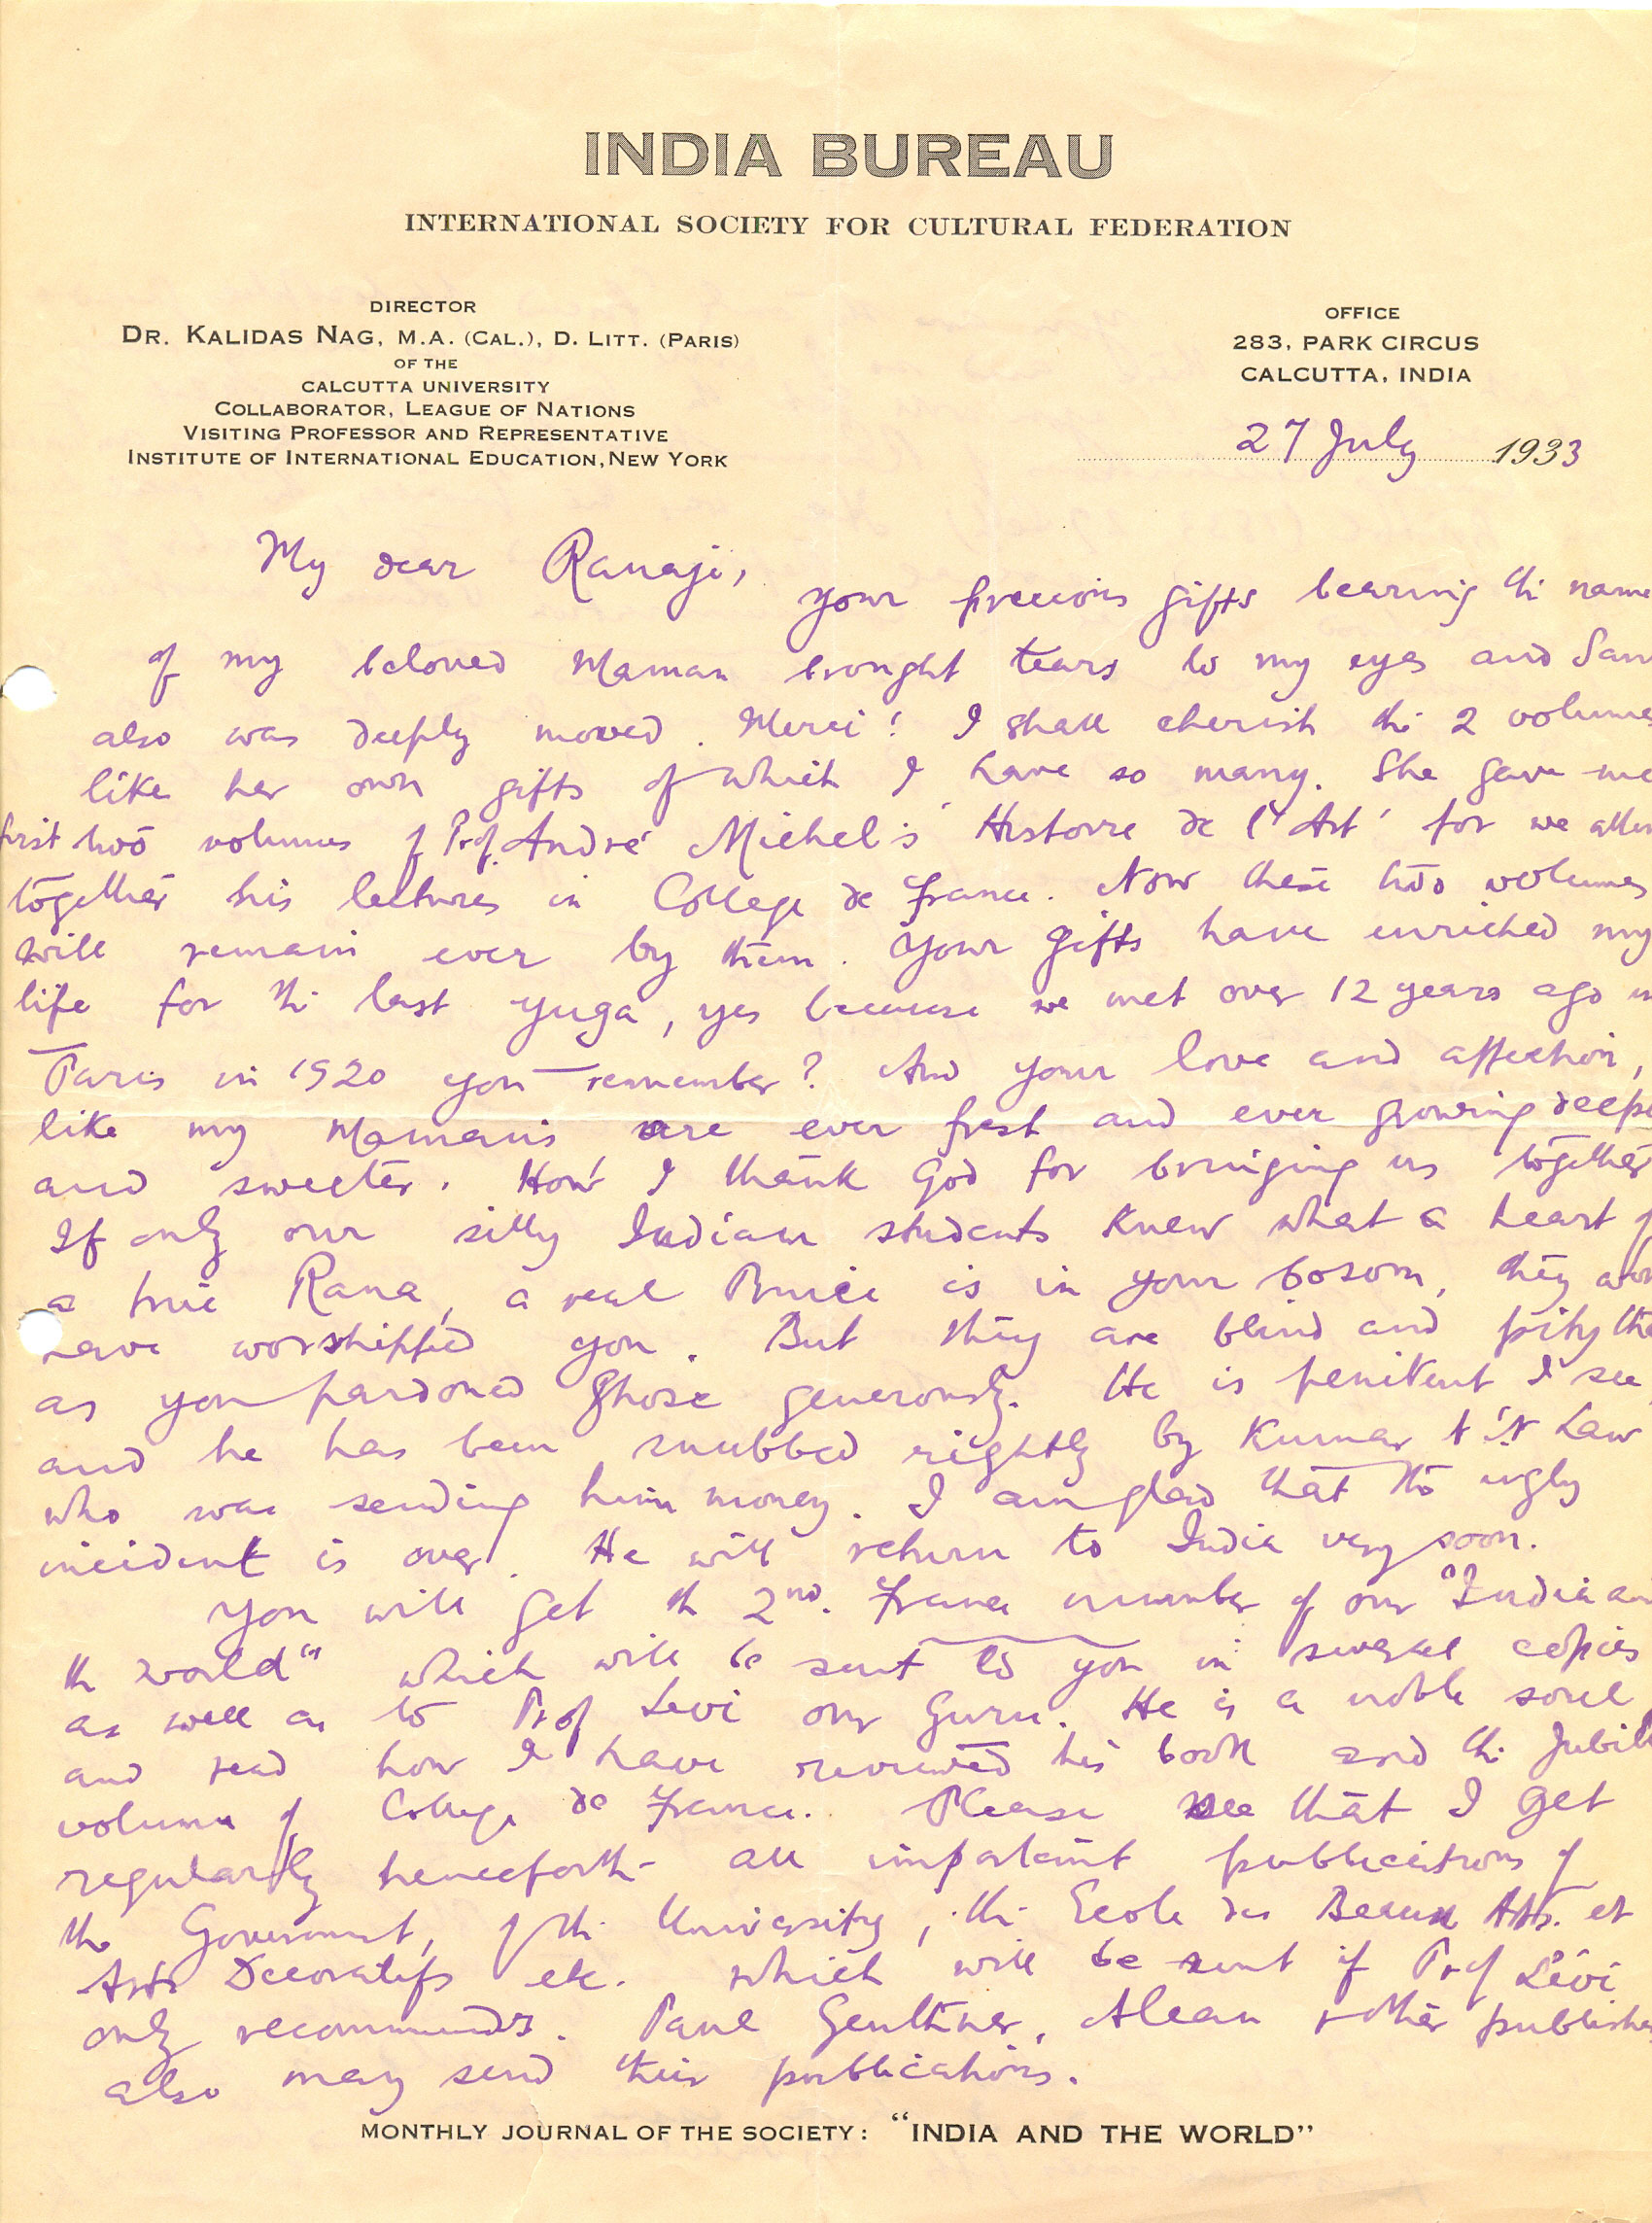 INDIA BUREAU
INTERNATIONAL SOCIETY FOR CULTURAL FEDERATION
DIRECTOR
DR. KALIDAS NAG, M.A. (CAL.), D. LITT. (PARIS)
OF THE
CALCUTTA UNIVERSITY
COLLABORATOR, LEAGUE OF NATIONS
VISITING PROFESSOR AND REPRESENTATIVE
INSTITUTE OF INTERNATIONAL EDUCATION, NEW YORK
OFFICE
283, PARK CIRCUS
CALCUTTA, INDIA
27 July 1933
My dear Ranaji,
your precious gifts bearing the name
of my beloved Maman brought tears to my eyes and
also was deeply moved. Merci! I shall cherish the 2 volumes
like her own gifts of which I have so many. She gave me
first two volumes of Prof. André Michel's 'Histoire de l'Art' for we
together his lectures in College de France. Now these two volumes
will remain ever by them. Your gifts have enriched my
life for the last yuga, yes because we met over 12 years ago in
Paris in 1920 you remember? And your love and affection,
like my Maman's are ever fresh and ever growing deeper
and sweeter. How I thank God for bringing us together
If only our silly Indian students knew what a heart of
a true Rana, a real Prince is in your bosom, they
have worshipped you. But they are blind and pity
as you pardoned Ghose generously. He is penitent I see
and he has been snubbed rightly by Kumar N. Law
who was sending him money. I am glad that the ugly
incident is over. He will return to India very soon.
You will get the 2nd. France number of our "India and
the World" which will be sent to you in several copies
as well as to Prof Levi our Guru. He is a noble soul
and read how I have reviewed his book and the
volume of College de France. Please see that I get
regularly henceforth all important publications of
the Government, of the University, the Ecole des Beaux Arts. et
Arts Decoratifs etc. which will be sent if Prof Lévi
only recommends. Paul Geuthner, Alcan & other
also may send their publications.
MONTHLY JOURNAL OF THE SOCIETY: "INDIA AND THE WORLD"